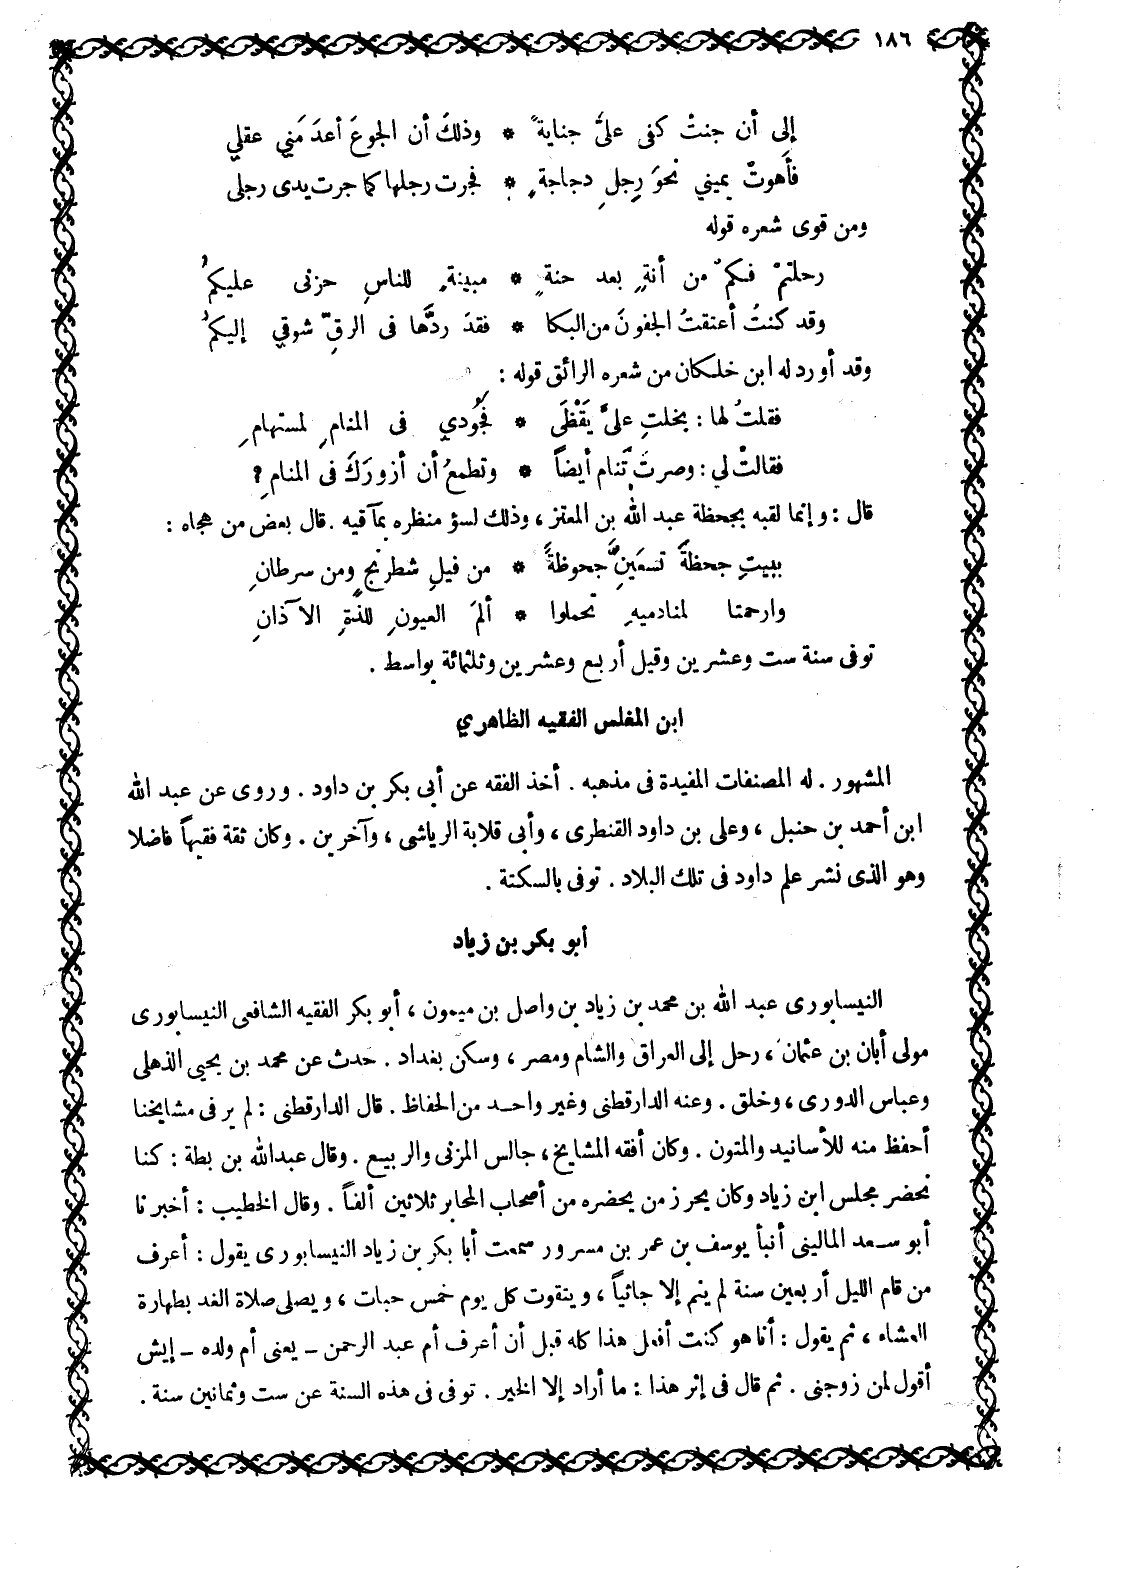 ١٨٦
إلى أن جنتْ كفى علىَّ جنايةً * وذلكَ أن الجوعَ أعدَمَني عقلي
فأَهوتْ يميني نحوَ رِجلِ دجاجةٍ * فجرت رجلها كما جرت يدى رجلى
ومن قوى شعره قوله
رحلتمْ فكم من أنةٍ بعد حنةٍ * مبينةٍ للناسِ حزنى عليكمُ
وقد كنتُ أعتقتُ الجفونَ من البكا * فقدَ ردَّها فى الرقِّ شوقي إليكمُ
وقد أورد له ابن خلكان من شعره الرائق قوله :
فقلتُ لها : بخلتِ علىَّ يَقْظَى * فجُودي فى المنامِ لمستهامِ
فقالتْ لي : وصرتَ تنام أيضاً * وتطمعُ أن أزورَكَ فى المنامِ ?
قال : وإنما لقبه بجحظة عبد الله بن المعتز ، وذلك لسؤ منظره بمآقيه . قال بعض من هجاه :
ببيتِ جحظةَ تسعَينَّ جحوظةً * من فيلِ شطرنجٍ ومن سرطانِ
وارحمتا لمنادميهِ تحملوا * ألمَ العيونِ للذةِ الآذانِ
توفى سنة ست وعشرين وقيل أربع وعشرين وثلثمائة بواسط .
ابن المغلس الفقيه الظاهري
المشهور . له المصنفات المفيدة فى مذهبه . أخذ الفقه عن أبى بكر بن داود . وروى عن عبد الله
ابن أحمد بن حنبل ، وعلى بن داود القنطرى ، وأبى قلابة الرياشى ، وآخرين . وكان ثقة فقيهاً فاضلا
وهو الذى نشر علم داود فى تلك البلاد . توفى بالسكتة .
أبو بكر بن زياد
النيسابورى عبد الله بن محمد بن زياد بن واصل بن ميمون ، أبو بكر الفقيه الشافعى النيسابورى
مولى أبان بن عثمان ، رحل إلى العراق والشام ومصر ، وسكن بغداد . حدث عن محمد بن يحيى الذهلى
وعباس الدورى ، وخلق . وعنه الدارقطنى وغير واحد من الحفاظ . قال الدارقطنى : لم ير فى مشايخنا
أحفظ منه للأسانيد والمتون . وكان أفقه المشايخ ، جالس المزنى والربيع . وقال عبدالله بن بطة : كنا
نحضر مجلس ابن زياد وكان يحرز من يحضره من أصحاب المحابر ثلاثين ألفاً . وقال الخطيب : أخبرنا
أبو سعد المالينى أنبأ يوسف بن عمر بن مسرور سمعت أبا بكر بن زياد النيسابورى يقول : أعرف
من قام الليل أربعين سنة لم ينم إلا جاثياً ، ويتقوت كل يوم خمس حبات ، ويصلى صلاة الغد بطهارة
العشاء ، ثم يقول : أنا هو كنت أفعل هذا كله قبل أن أعرف أم عبد الرحمن ـ يعنى أم ولده ـ إيش
أقول لمن زوجنى . ثم قال فى إثر هذا : ما أراد إلا الخير . توفى فى هذه السنة عن ست وثمانين سنة .